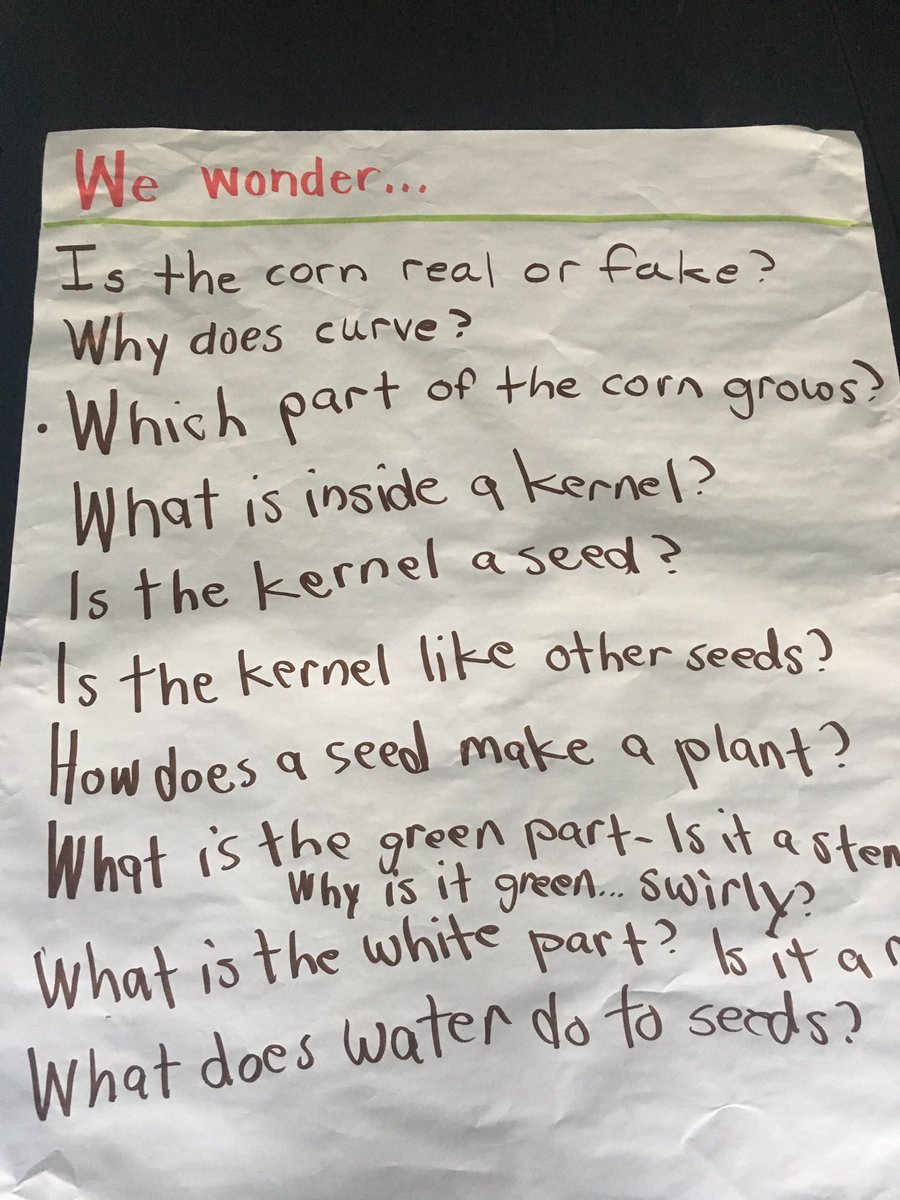 We wonder...
Is the corn real or fake?
Why does curve?
• Which part of the corn grows?
What is inside a kernel?
Is the kernel a seed?
Is the kernel like other seeds?
How does a seed make a plant?
What is the green part- Is it a
Why is it green... swirly?
What is the white part? Is it a
What does water do to seeds?